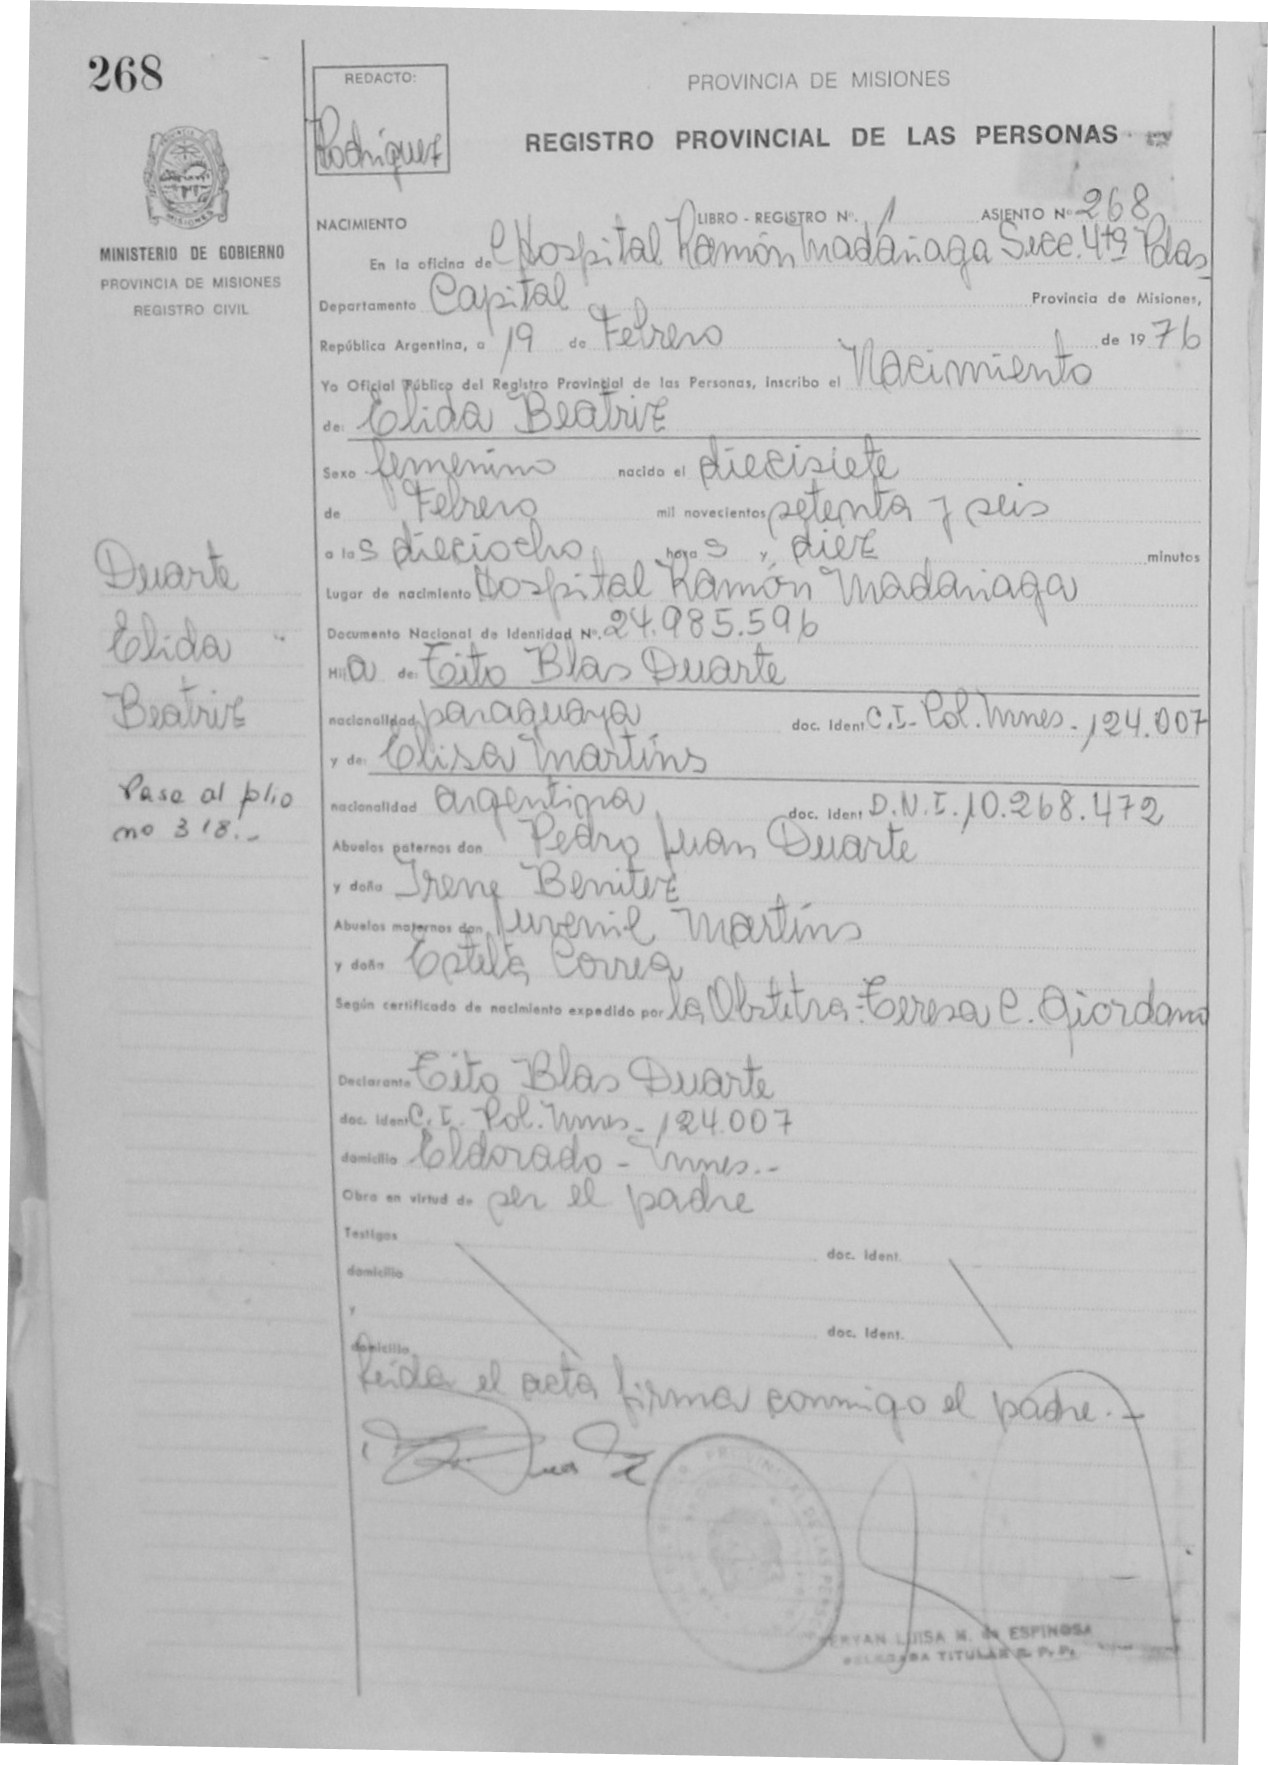 268
REDACTO:
Rodriguez
PROVINCIA DE MISIONES
REGISTRO PROVINCIAL DE LAS PERSONAS
MINISTERIO DE GOBIERNO
PROVINCIA DE MISIONES
REGISTRO CIVIL
NACIMIENTO LIBRO - REGISTRO Nº. 1 ASIENTO Nº 268
En la oficina de Hospital Ramón Madariaga Secc. 4ta Pdas
Departamento Capital Provincia de Misiones,
República Argentina, a 19 de Febrero de 1976
Yo Oficial Público del Registro Provincial de las Personas, inscribo el Nacimiento
de: Elida Beatriz
Sexo femenino nacido el diecisiete
de Febrero mil novecientos setenta y seis
a las dieciocho horas y diez minutos
Lugar de nacimiento Hospital Ramón Madariaga
Documento Nacional de Identidad Nº. 24.985.596
Hija de: Tito Blas Duarte
nacionalidad paraguaya doc. Ident C.I. Pol. Mnes - 124.007
y de: Elisa Martins
nacionalidad argentina doc. Ident D.N.I. 10.268.472
Abuelos paternos don Pedro Juan Duarte
y doña Irene Benitez
Abuelos maternos don Juvenil Martins
y doña Estela Correa
Según certificado de nacimiento expedido por la Obstetra: Teresa C. Giordano
Declarante Tito Blas Duarte
doc. Ident C.I. Pol. Mnes - 124.007
domicilio Eldorado - Mnes.-
Obra en virtud de ser el padre
Testigos doc. Ident.
domicilio
y doc. Ident.
domicilio
Leida el acta firma conmigo el padre.-
Duarte
Elida
Beatriz
Pase al plio
no 318.-
LUISA M. de ESPINOSA
DELEGADA TITULAR R. P. P.